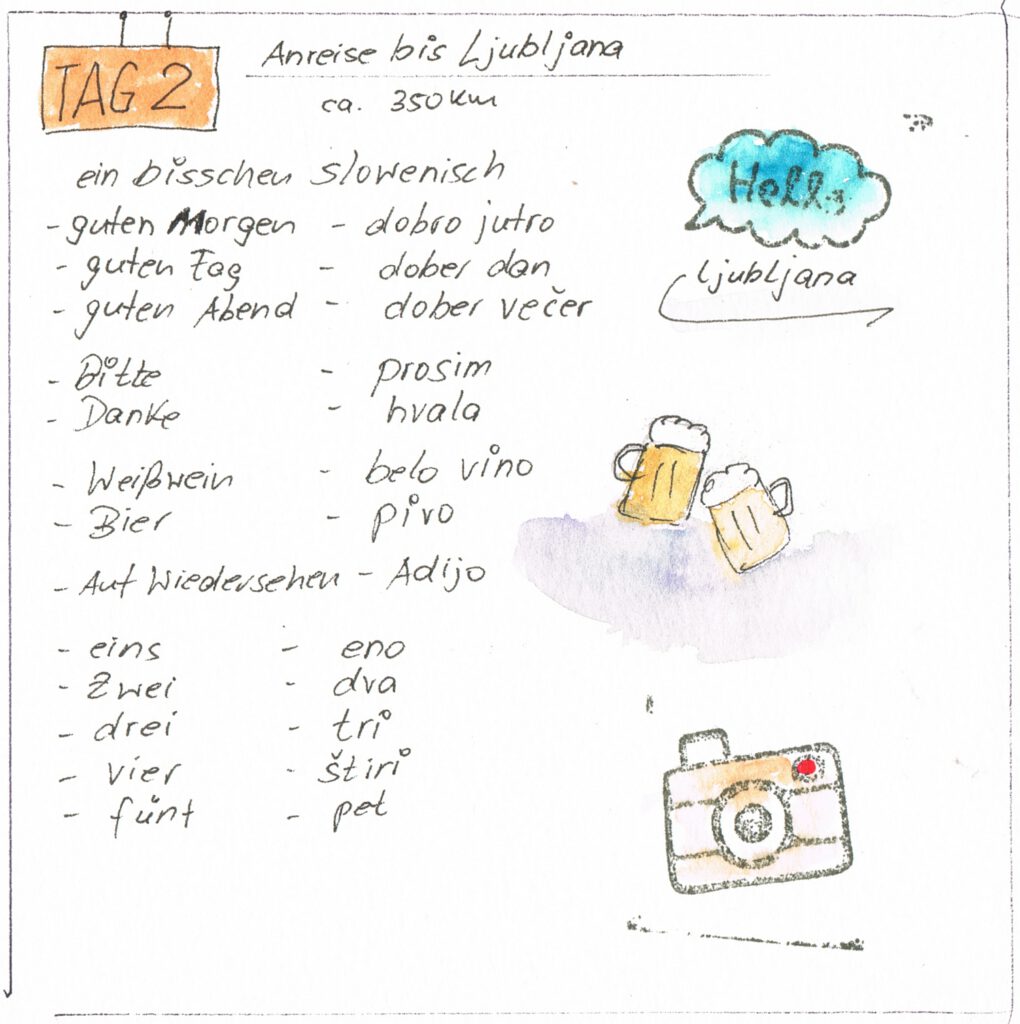 TAG 2
Anreise bis Ljubljana
ca. 350 km
ein bisschen slowenisch
- guten Morgen - dobro jutro
- guten Tag - dober dan
- guten Abend - dober večer
- Bitte - prosim
- Danke - hvala
- Weißwein - belo vino
- Bier - pivo
- Auf Wiedersehen - Adijo
- eins - eno
- zwei - dva
- drei - tri
- vier - štiri
- fünf - pet
Hello
Ljubljana